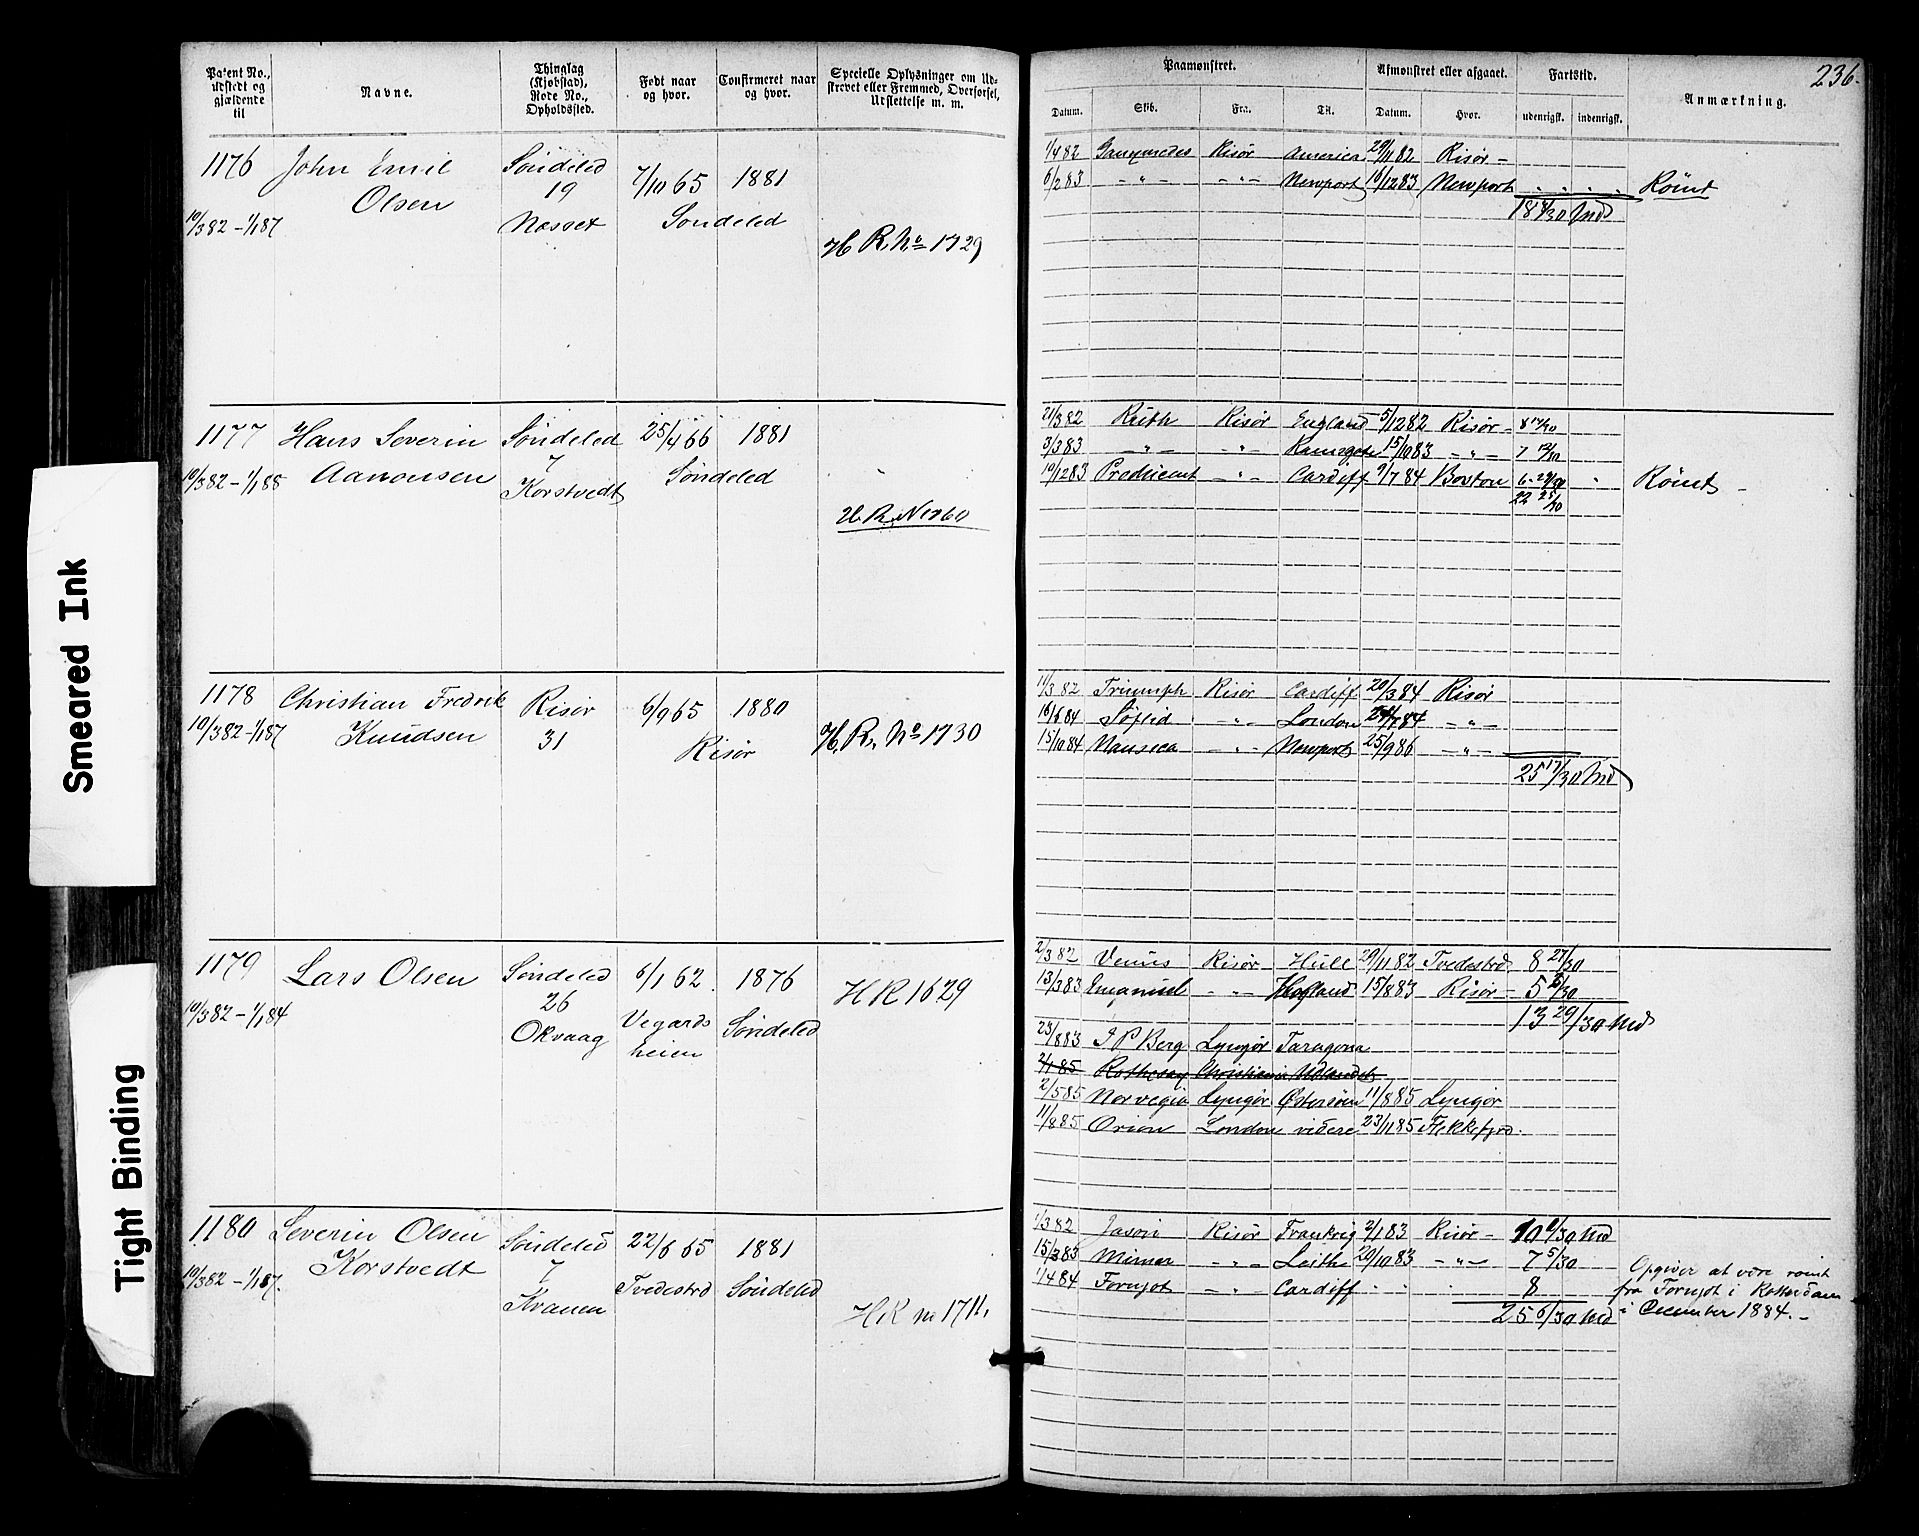 Patent No., udstedt og gjældende til
Navne.
Thinglag (Kjøbstad), Rode No., Opholdssted.
Født naar og hvor.
Confirmeret naar og hvor.
Specielle Oplysninger om Udstrevet eller Fremmed, Overførsel, Udslettelse m. m.
Paamønstret.
Afmønstret eller afgaaet.
Fartstid.
236.
Datum.
Skib.
Fra.
Til.
Datum.
Hvor.
udenrigsk.
indenrigsk.
Anmærkning.
1176 John Emil Søndeled 7/10 65 1881
Olsen 19
10/3 82 - 1/1 87 Næsset Søndeled
H. R. No 1729
1/4 82 Ganymedes Risør America 29/11 82 Risør -
6/2 83 - " - - " - Newport 16/12 83 Newport Rømt
18 8/30 Md
1177 Hans Severin Søndeled 25/4 66 1881
10/3 82 - 1/1 88 Aanonsen 7 Søndeled
Korstvedt
H. R. N 1760
21/3 82 Ruth Risør England 5/12 82 Risør -
3/3 83 - " - - " - Ramsgate 15/10 83 - " -
10/12 83 Predicant - " - Cardiff 9/7 84 Boston Rømt -
1178 Christian Fredrik Risør 6/9 65 1880
10/3 82 - 1/1 87 Knudsen 31 Risør
H. R. No 1730
11/3 82 Triumph Risør Cardiff 20/3 84 Risør
- " - London - " -
15/10 84 Nausica - " - Newport 25/9 86 - " -
25 17/30 Md
1179 Lars Olsen Søndeled 6/1 62. 1876
26
10/3 82 - 1/1 84 Okvaag Vegards Søndeled
heien
HR 1629
2/3 82 Venus Risør Hull 29/11 82 Tvedestrd 8 27/30
13/3 83 Emanuel - " - 15/8 83 Risør - 5 2/30
13 29/30 Md
23/8 83 I P Berg Lyngør Taragona
2/1 85 Rothesay Christiania Udlandet
2/5 85 Norvegia Lyngør Østersøen 11/8 85 Lyngør
11/8 85 Orion London videre 23/11 85 Flekkefjord.
1180 Severin Olsen Søndeled 22/6 65 1881
Korstvedt 7
10/3 82 - 1/1 87. Kranen Tvedestrd Søndeled
HR no 1711.
1/3 82 Jason Risør Frankrig 2/1 83 Risør - 10 1/30 Md
15/3 83 Mimer - " - Leith 20/10 83 - " - 7 5/30
1/4 84 Fornjot - " - Cardiff 8
25 6/30 Md
Opgiver at være rømt
fra Fornjot i Rotterdam
i December 1884. -
Smeared Ink
Tight Binding